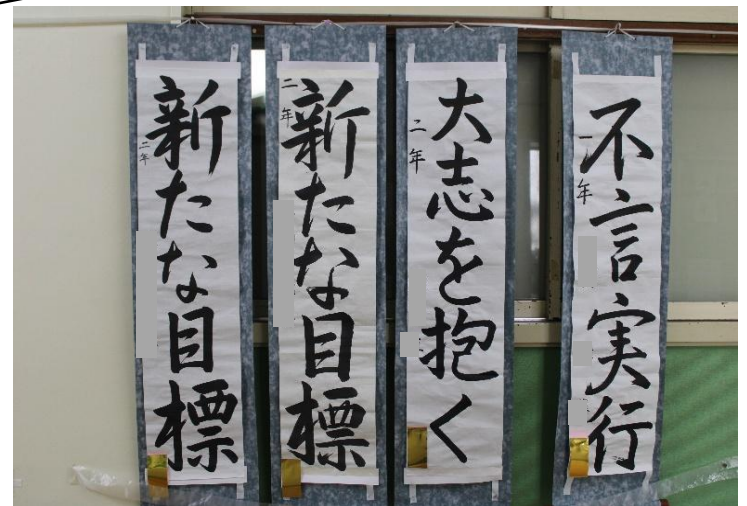 不言実行
一年
大志を抱く
二年
新たな目標
二年
新たな目標
二年